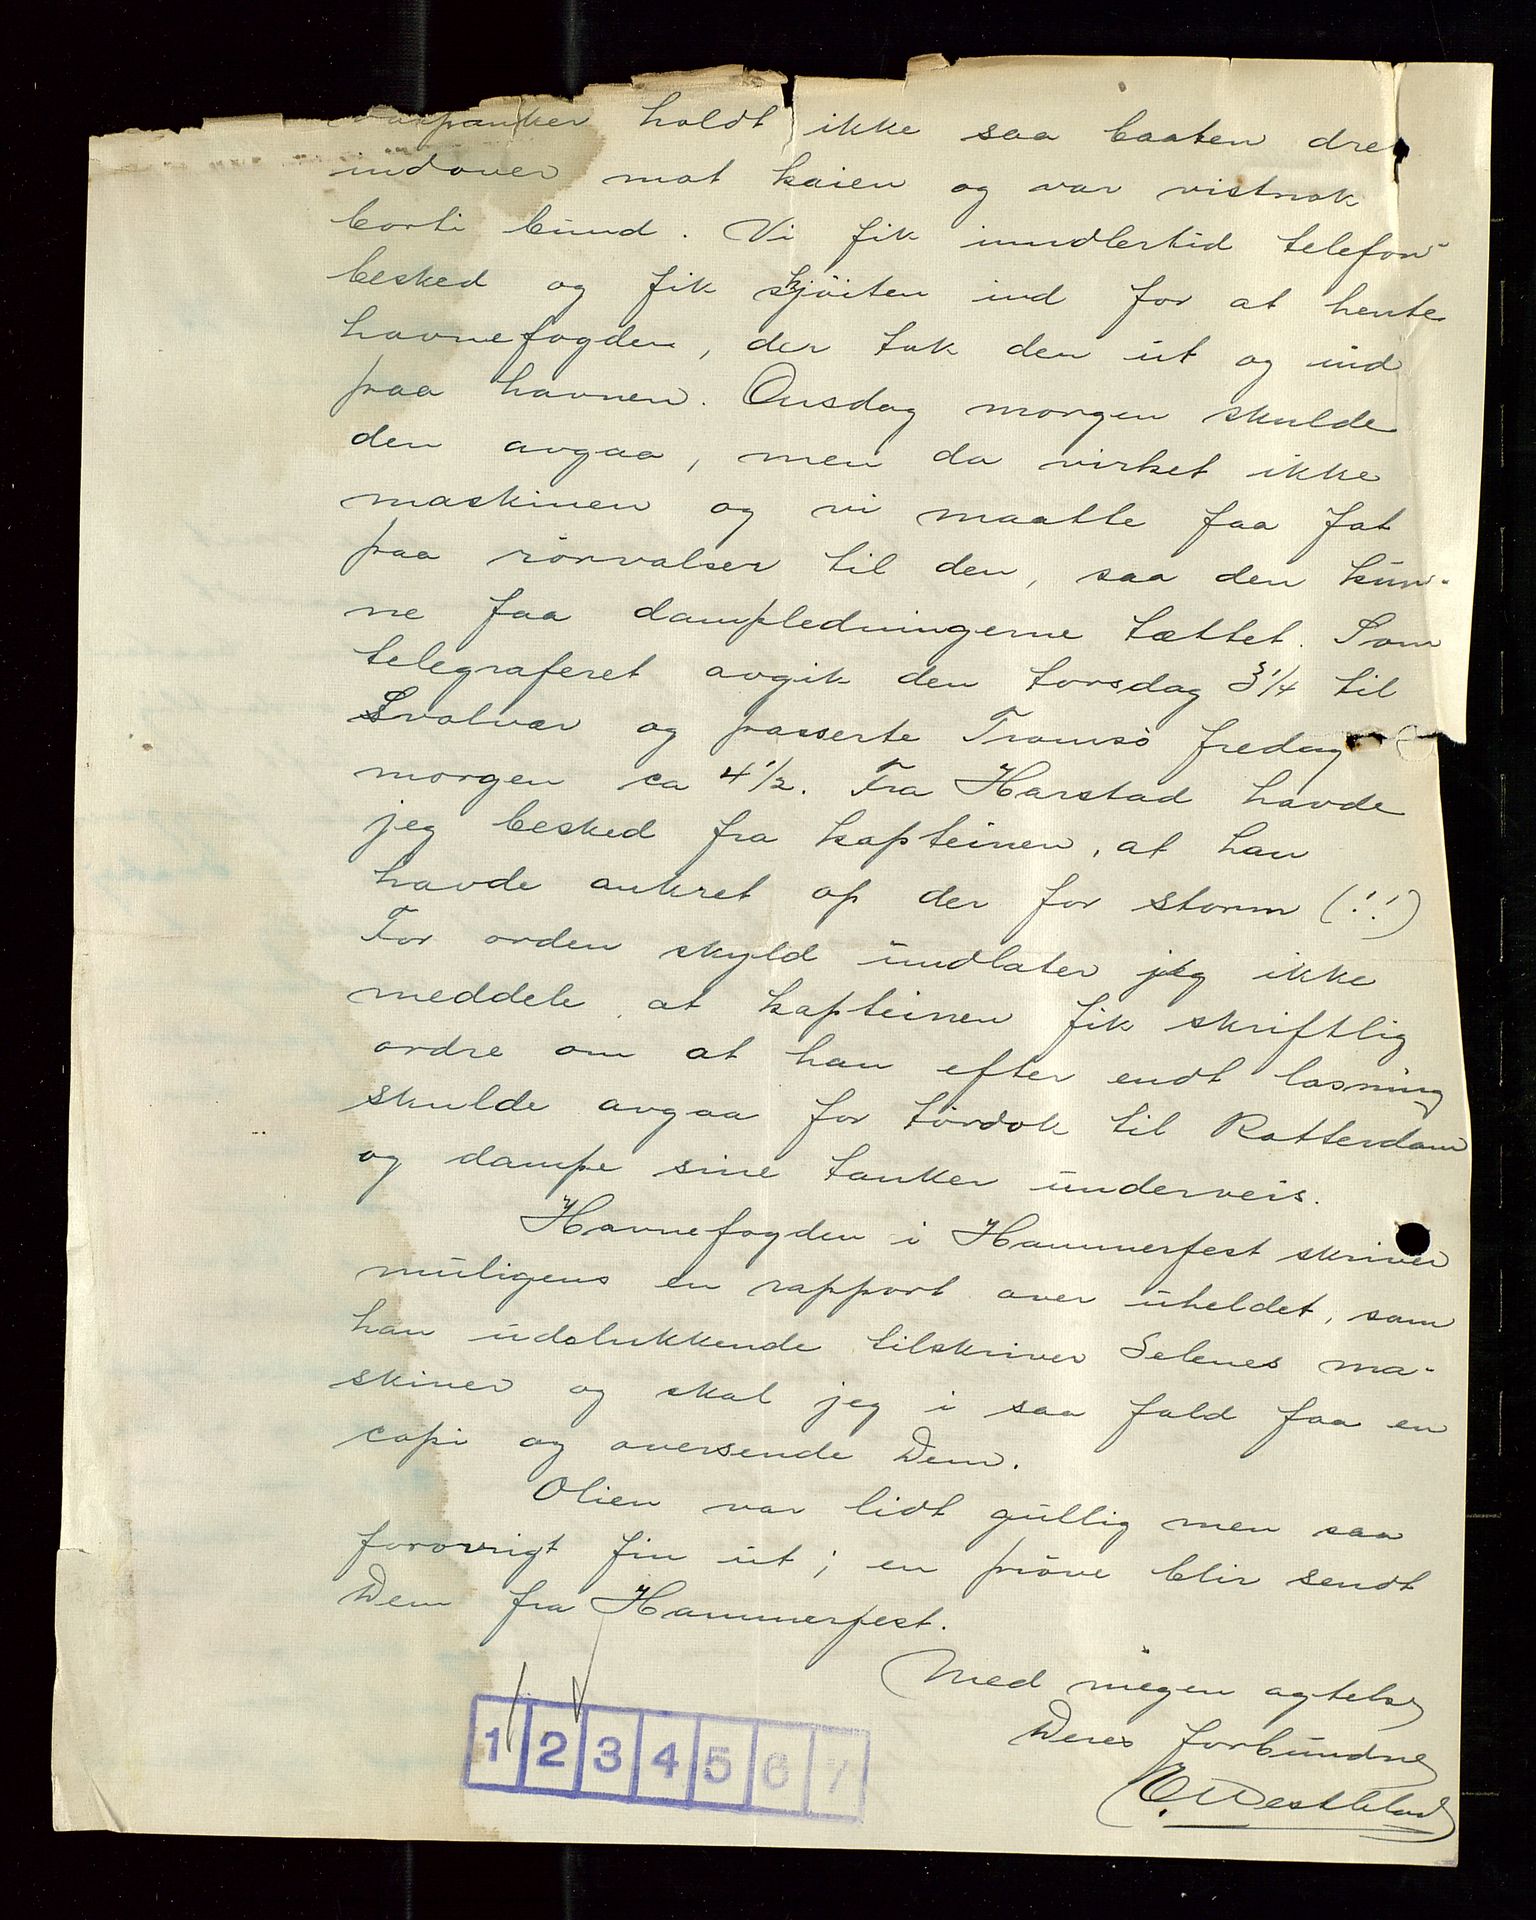 holdt ikke saa baaten dre
indover mot kaien og var vistnok
borti bund. Vi fik imidlertid telefon-
besked og fik skjöiten ind for at hente
havnefogden, der tok den ut og ind
paa havnen. Onsdag morgen skulde
den avgaa, men da virket ikke
maskinen og vi maatte faa fat
paa rörvalser til den, saa den kun-
ne faa dampledningerne tættet. Som
telegraferet avgik den torsdag 3 1/4 til
Svolvær og passerte Tromsö fredag
morgen ca 4 1/2. Fra Harstad havde
jeg besked fra kapteinen, at han
havde ankret op der for storm (!!)
For orden skyld undlater jeg ikke
meddele at kapteinen fik skriftlig
ordre om at han efter endt losning
skulde avgaa for tördok til Rotterdam
og dampe sine tanker underveis.
Havnefogden i Hammerfest skriver
muligens en rapport over uheldet, som
han udelukkende tilskriver Selenes ma-
skiner og skal jeg i saa fald faa en
copi og oversende Dem.
Olien var lidt gullig men saa
forövrigt fin ut; en pröve blir sendt
Dem fra Hammerfest.
Med megen agtelse
Deres forbundne
1 2 3 4 5 6 7